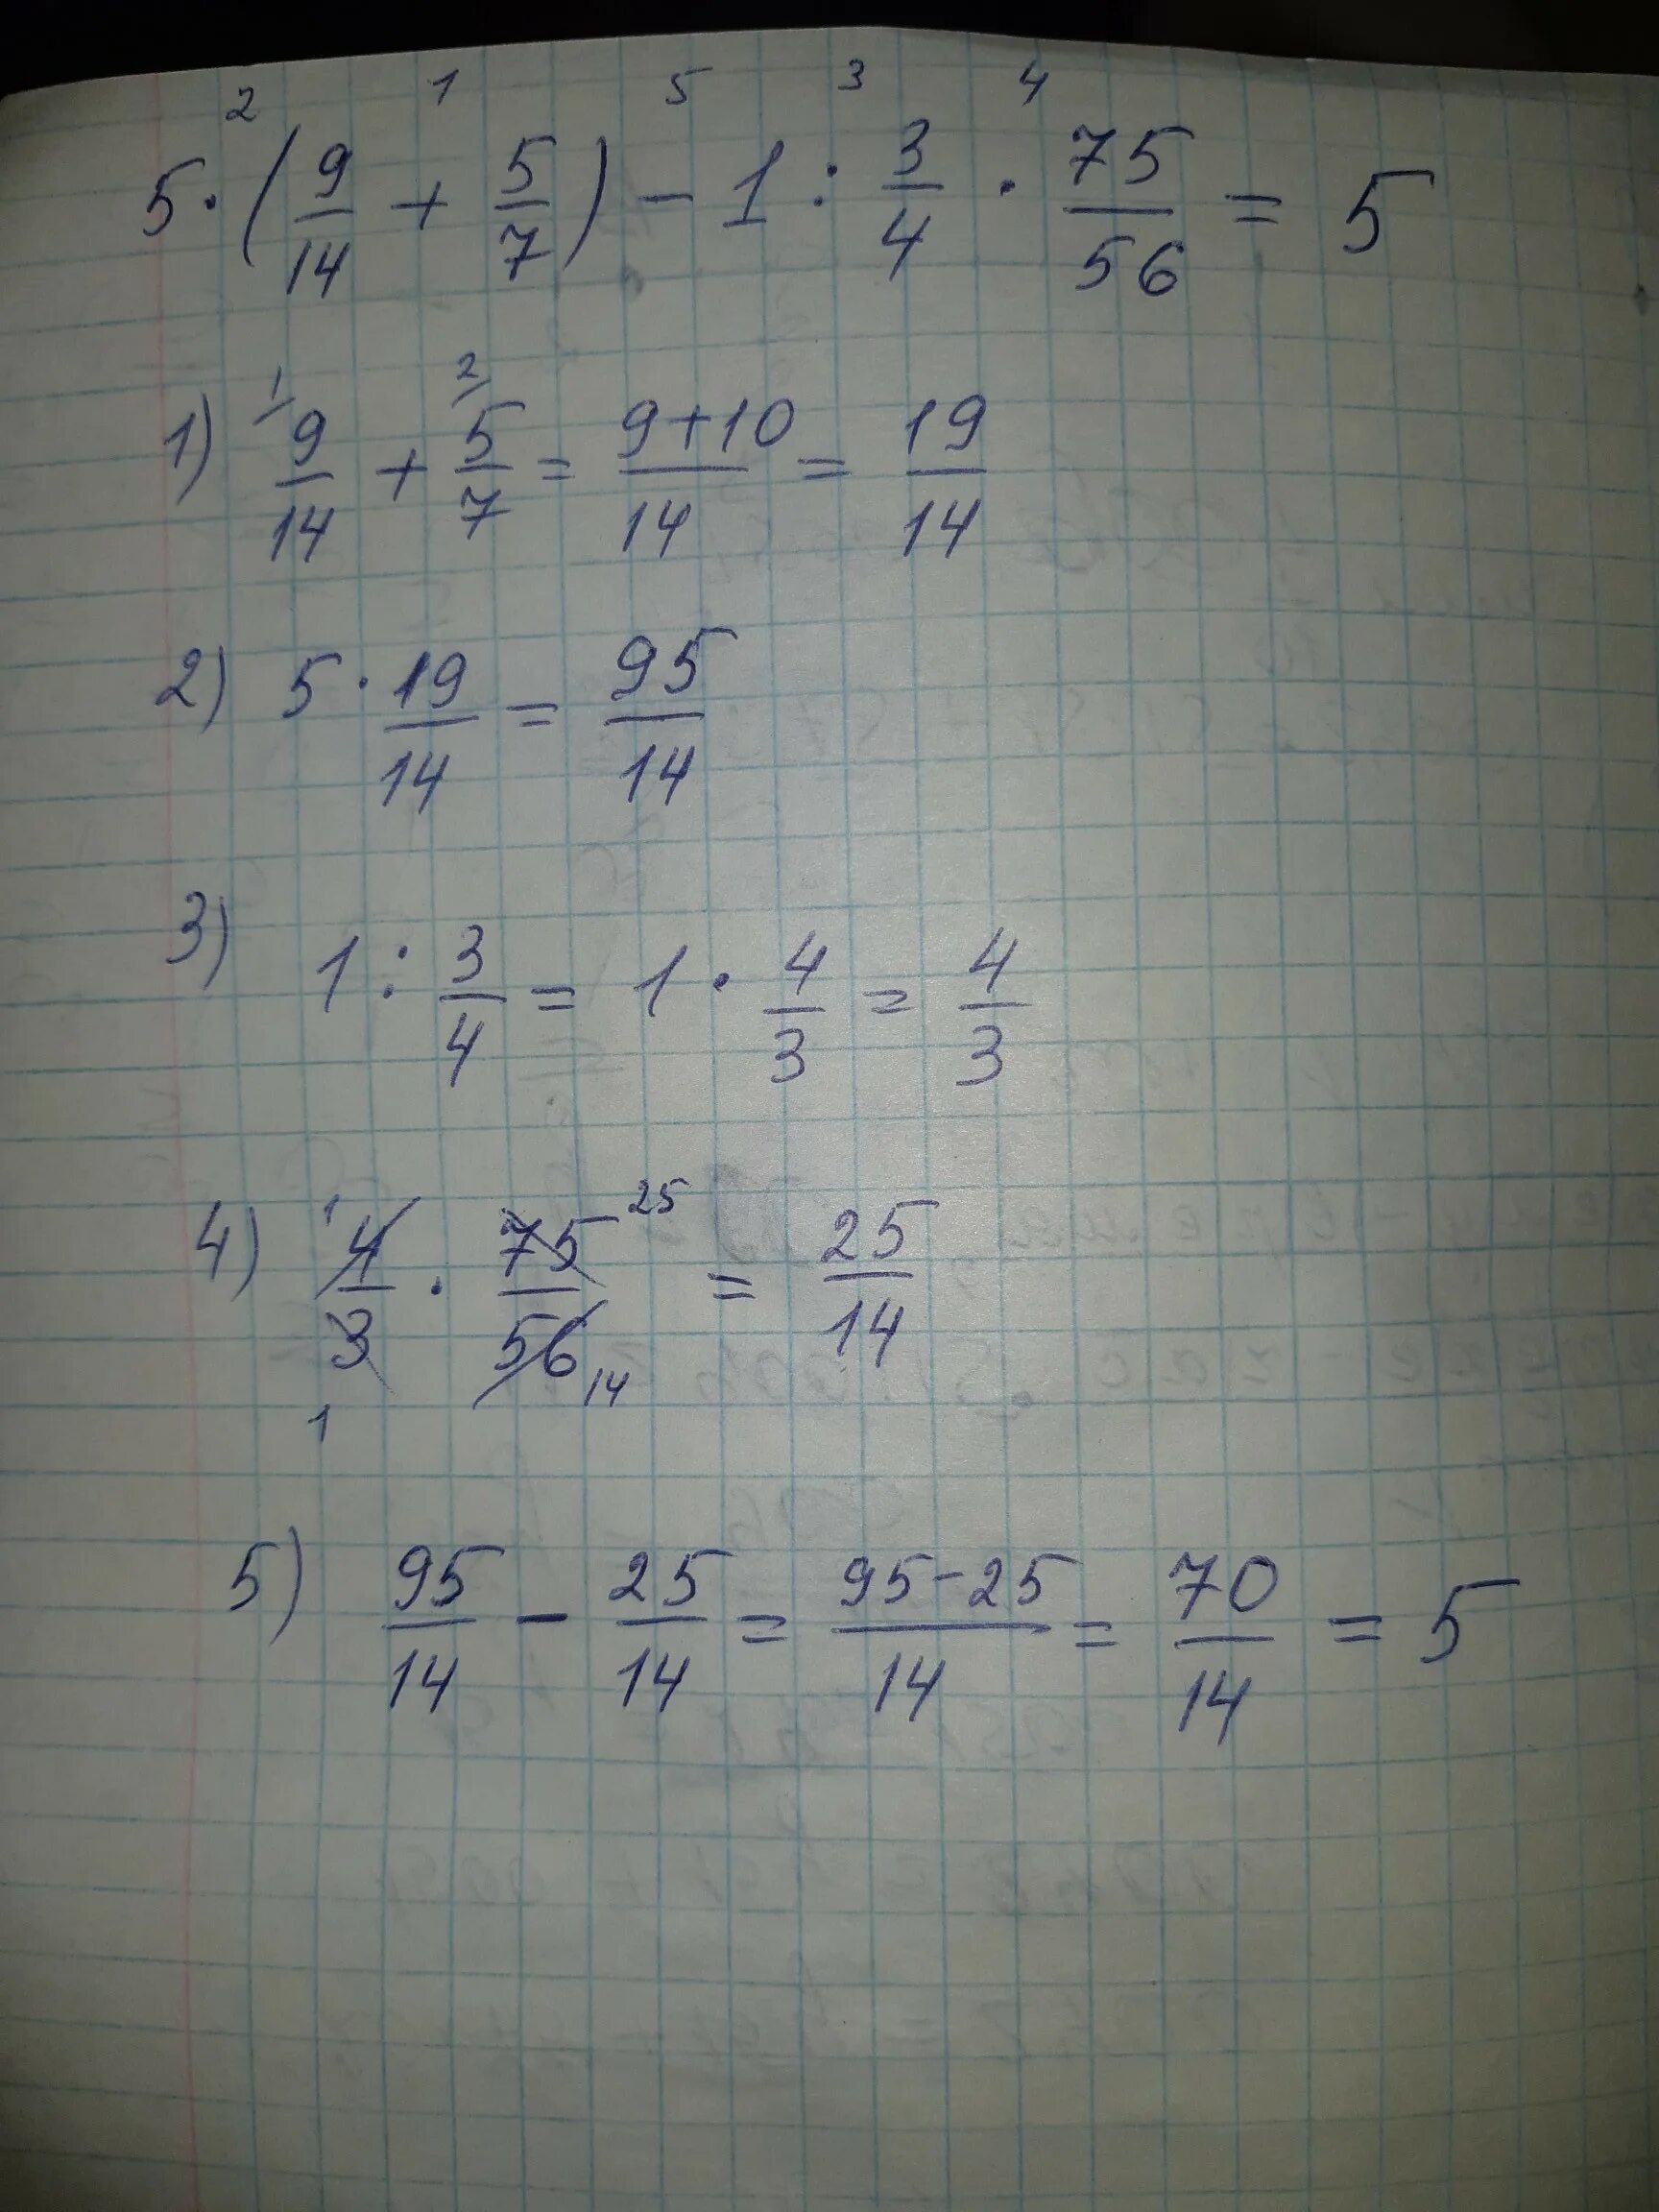 2 1 5 3 4
5·(9/14 + 5/7) - 1 : 3/4 · 75/56 = 5
1) 1/ 9/14 + 2/ 5/7 = (9+10)/14 = 19/14
2) 5 · 19/14 = 95/14
3) 1 : 3/4 = 1 · 4/3 = 4/3
4) 1 4/3 1 · 75/56 25 14 = 25/14
5) 95/14 - 25/14 = (95-25)/14 = 70/14 = 5